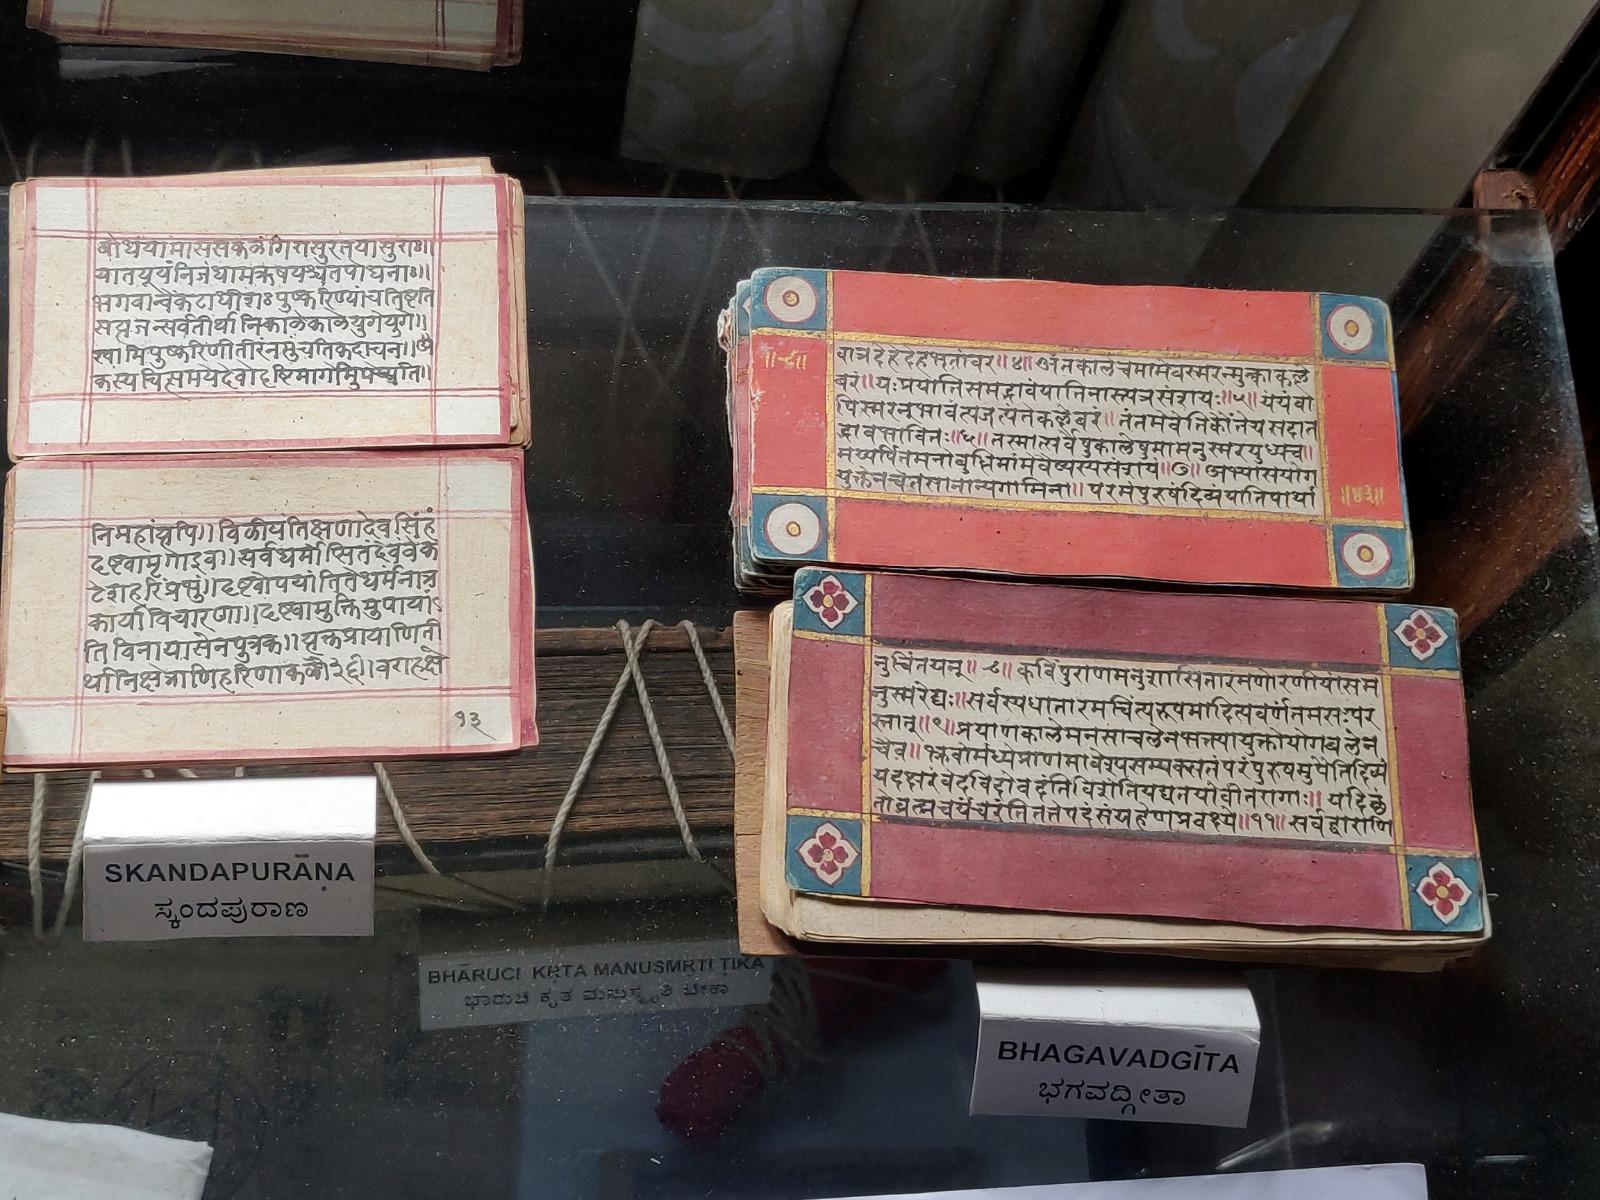 बोधयामाससकलंगिरासुरतयासुराः॥
यातयूयंनिजंधामऋषयश्चतपोधनाः॥
भगवान्वेंकटाधीशःपुष्करिण्यांचतिष्ठति
सप्तजन्सर्वतीर्थानिकालेकालेयुगेयुगे॥
स्वामिपुष्करिणीतीरंनमुंचतिकदाचन॥
कस्यचित्समयदेवोदृष्टिमार्गमुपेष्यति॥
निमहांत्यपि॥विलीयंतिक्षणादेवसिंहं
दृष्ट्वामृगाइव॥सर्वधर्मास्सितदेववेंक
टेशहरिंप्रभुं॥दृष्ट्वोपयांतितेधर्मनात्र
कार्याविचारणा॥दृष्ट्वामुक्तिमुपायां
तिविनायासेनपुत्रक॥
र्थानिक्षेत्राणिहरिणाकलौ३६॥वराहक्षे
१३
SKANDAPURĀṆA
ಸ್ಕಂದಪುರಾಣ
वात्रदेहेदेहभृतांवर॥४॥अंतकालेचमामेवस्मरन्मुत्काकले
बरं॥यःप्रयातिसमद्भावंयातिनास्त्यत्रसंशयः॥५॥यंयंवा
पिस्मरन्भावंत्यजत्यंतेकलेबरं॥तंतमेवैतिकौंतेयसदात
द्भावभावितः॥६॥तस्मात्सर्वेषुकालेषुमामनुस्मरयुध्यच॥
मय्यर्पितमनोबुद्धिर्मामेवैष्यस्यसंशयं॥७॥अभ्यासयोग
युक्तेनचेतसानान्यगामिना॥परमंपुरुषंदिव्यंयातिपार्था
॥४३॥
नुचिंतयन्॥८॥कविंपुराणमनुशासितारमणोरणीयांसम
नुस्मरेद्यः॥सर्वस्यधातारमचिंत्यरूपमादित्यवर्णंतमसःपर
स्तात्॥९॥प्रयाणकालेमनसाचलेनभक्त्यायुक्तोयोगबलेन
चैव॥भ्रुवोर्मध्येप्राणमावेश्यसम्यक्सतंपरंपुरुषमुपैतिदिव्यं
यदक्षरंवेदविदोवदंतिविशंतियद्यतयोवीतरागाः॥यदिच्छं
तोब्रह्मचर्यंचरंतितत्तेपदंसंग्रहेणप्रवक्ष्ये॥११॥सर्वद्वाराणि
BHĀRUCI KṚTA MANUSMṚTI ṬIKA
ಭಾರುಚಿ ಕೃತ ಮನುಸ್ಮೃತಿ ಟೀಕಾ
BHAGAVADGĪTA
ಭಗವದ್ಗೀತಾ